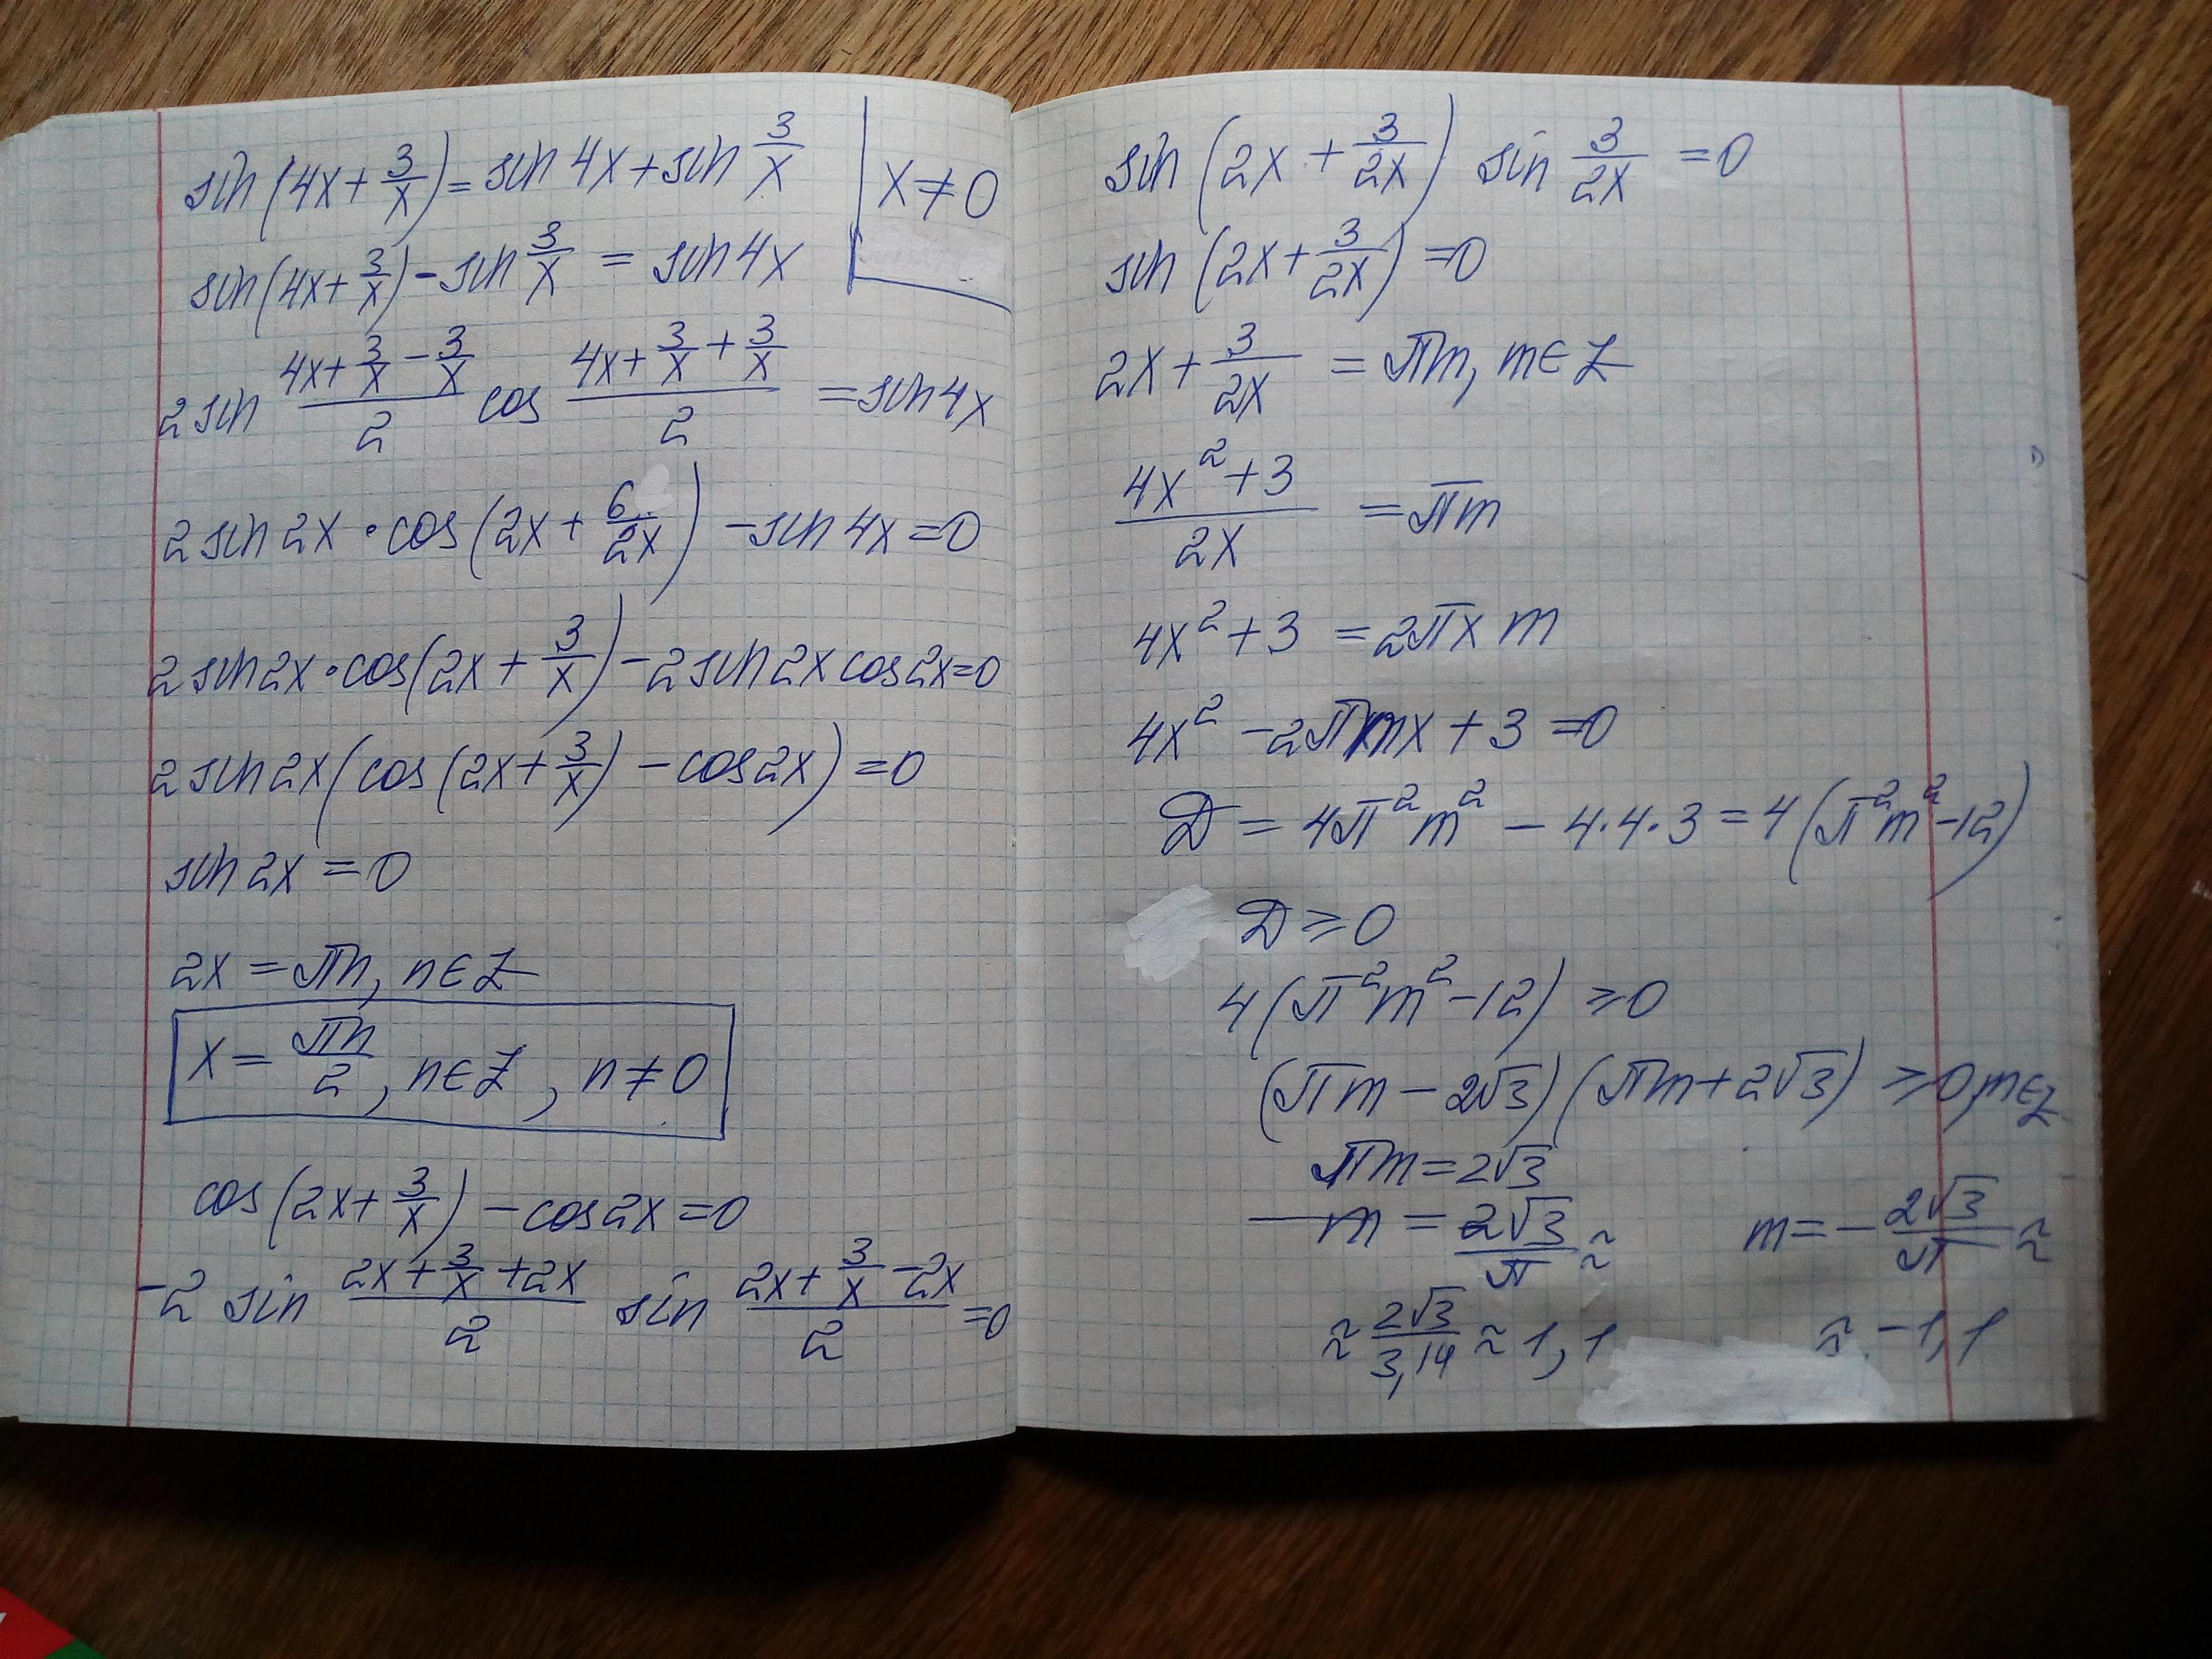 sin(4x + 3/x) = sin 4x + sin 3/x
x ≠ 0
sin(4x + 3/x) - sin 3/x = sin 4x
2 sin (4x + 3/x - 3/x)/2 cos (4x + 3/x + 3/x)/2 = sin 4x
2 sin 2x · cos(2x + 6/2x) - sin 4x = 0
2 sin 2x · cos(2x + 3/x) - 2 sin 2x cos 2x = 0
2 sin 2x (cos(2x + 3/x) - cos 2x) = 0
sin 2x = 0
2x = πn, n ∈ Z
x = πn/2, n ∈ Z, n ≠ 0
cos(2x + 3/x) - cos 2x = 0
-2 sin (2x + 3/x + 2x)/2 sin (2x + 3/x - 2x)/2 = 0
sin(2x + 3/2x) sin 3/2x = 0
sin(2x + 3/2x) = 0
2x + 3/2x = πm, m ∈ Z
(4x² + 3)/2x = πm
4x² + 3 = 2πx m
4x² - 2πmx + 3 = 0
D = 4π²m² - 4·4·3 = 4(π²m² - 12)
D ≥ 0
4(π²m² - 12) ≥ 0
(πm - 2√3)(πm + 2√3) ≥ 0, m ∈ Z
πm = 2√3
m = 2√3/π ≈
m = - 2√3/π ≈
≈ 2√3/3,14 ≈ 1,1
≈ -1,1